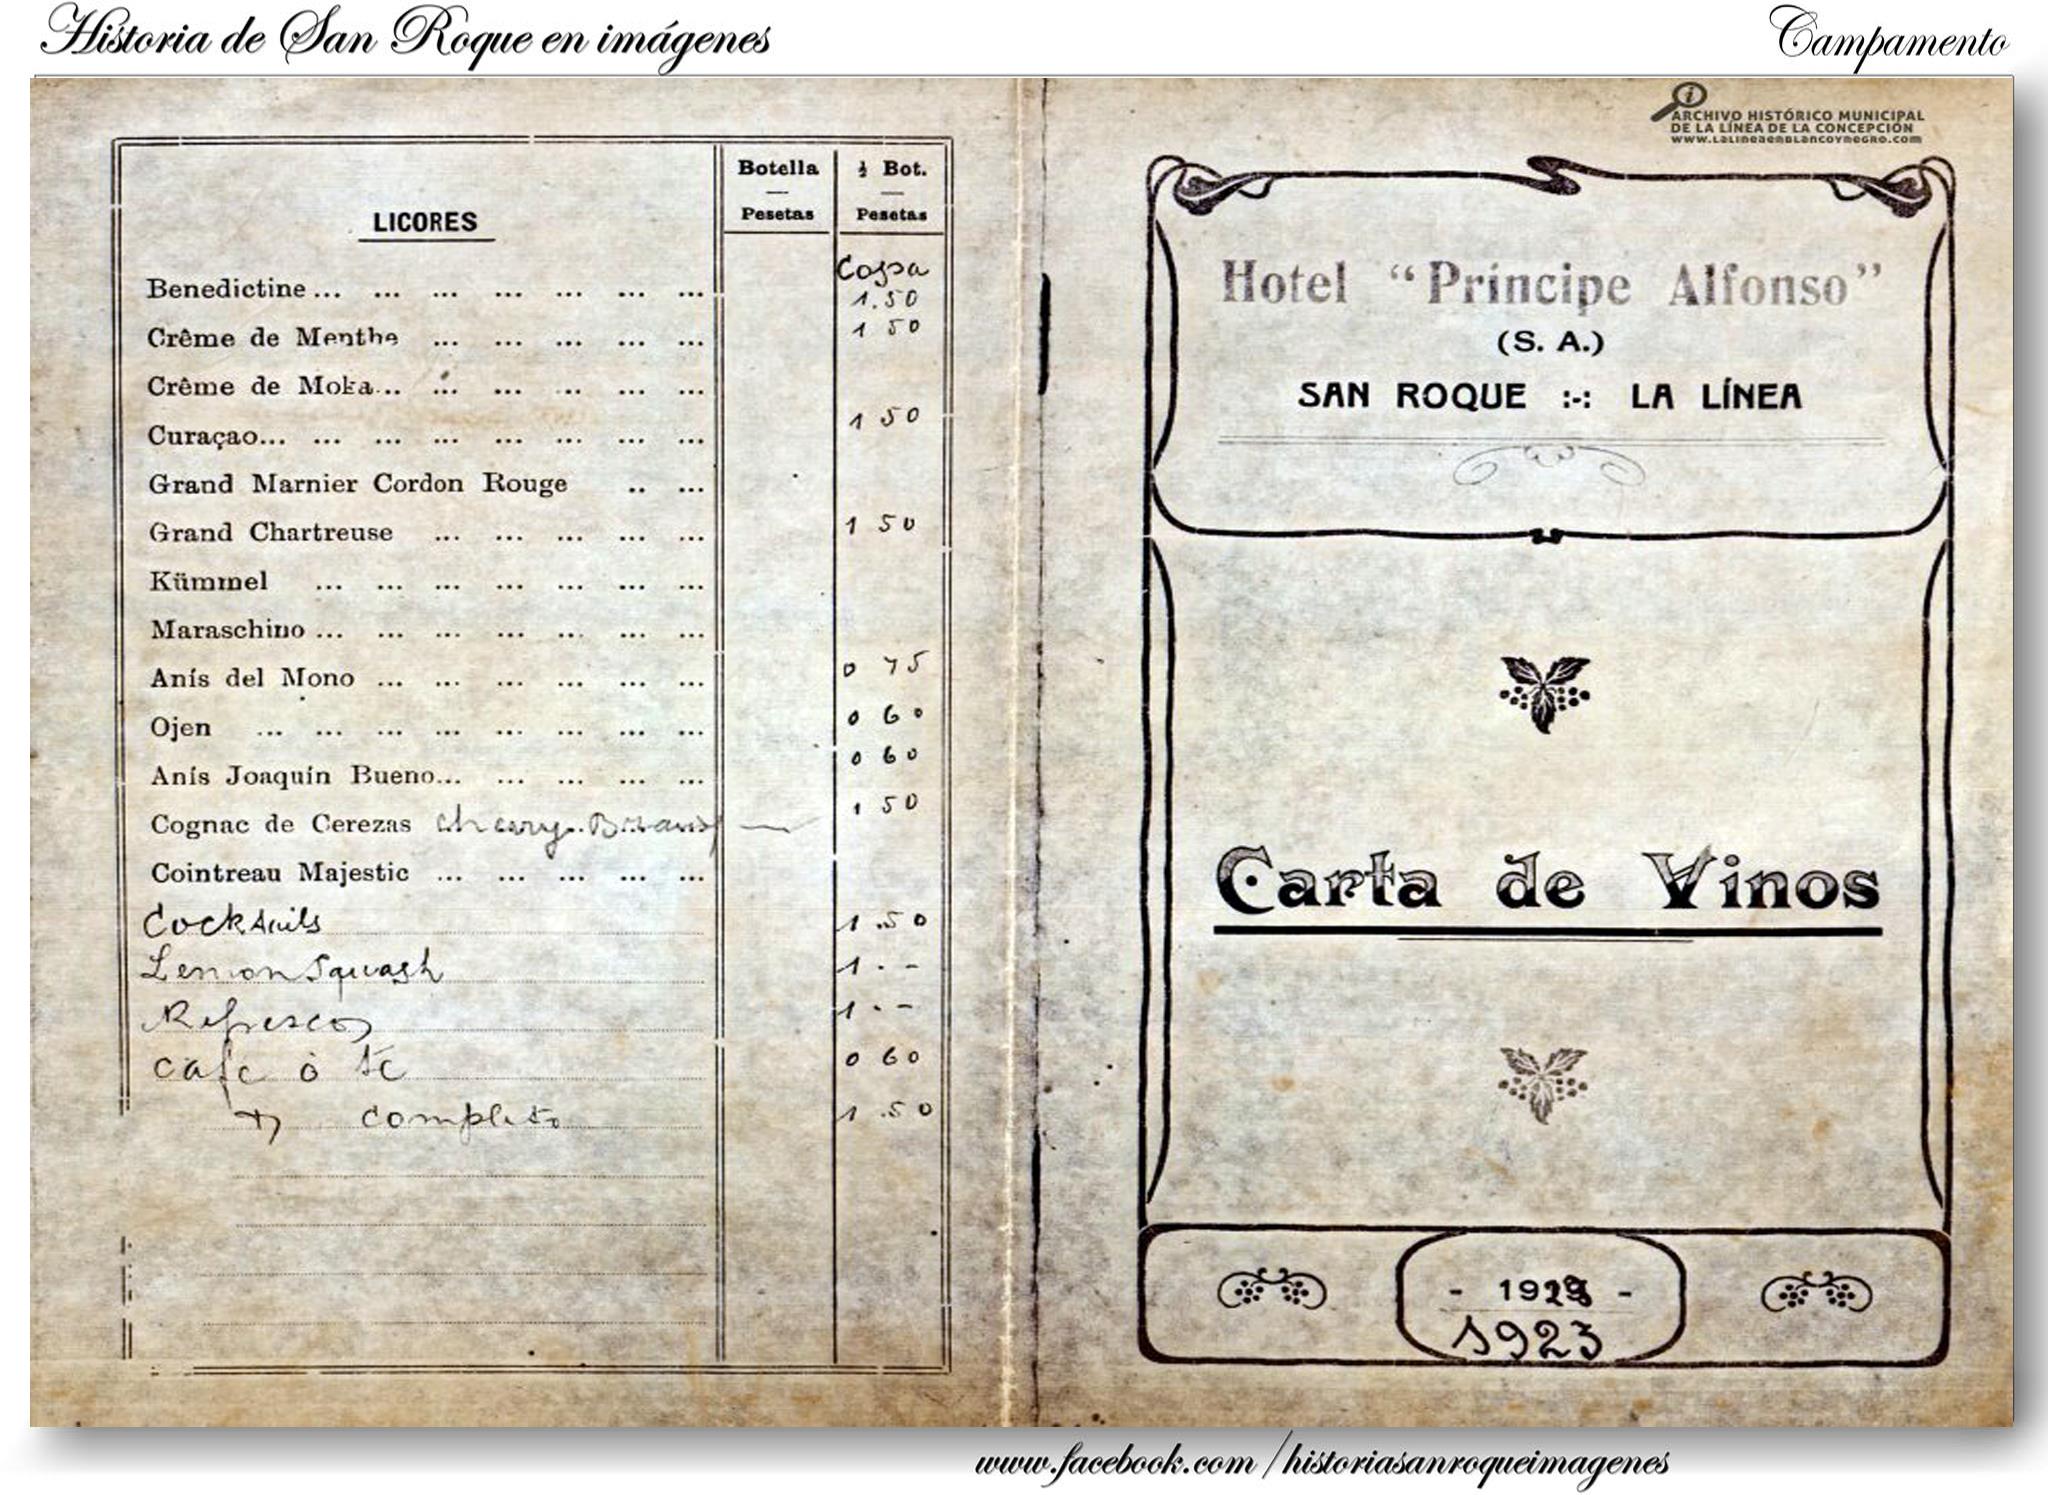 Historia de San Roque en imágenes
Campamento
LICORES
Botella
Pesetas
½ Bot.
Pesetas
Copa
Benedictine ... ... ... ... ... ... ... 1.50
Crême de Menthe ... ... ... ... ... 1 50
Crême de Moka... ... ... ... ... ...
Curaçao... ... ... ... ... ... ... ... 1 50
Grand Marnier Cordon Rouge .. ...
Grand Chartreuse ... ... ... ... ... 1 50
Kümmel ... ... ... ... ... ... ...
Maraschino ... ... ... ... ... ... ...
Anís del Mono ... ... ... ... ... ... 0 75
Ojen ... ... ... ... ... ... ... ... 0 60
Anís Joaquín Bueno... ... ... ... ... 0 60
Cognac de Cerezas cherry Brandy — 1 50
Cointreau Majestic ... ... ... ... ...
Cocktails 1.50
Lemon Squash 1.-
Refrescos 1.-
café ó té 0 60
completo 1.50
ARCHIVO HISTÓRICO MUNICIPAL
DE LA LÍNEA DE LA CONCEPCIÓN
www.lalineaenblancoynegro.com
Hotel “Príncipe Alfonso”
(S. A.)
SAN ROQUE :-: LA LÍNEA
Carta de Vinos
1923
www.facebook.com/historiasanroqueimagenes